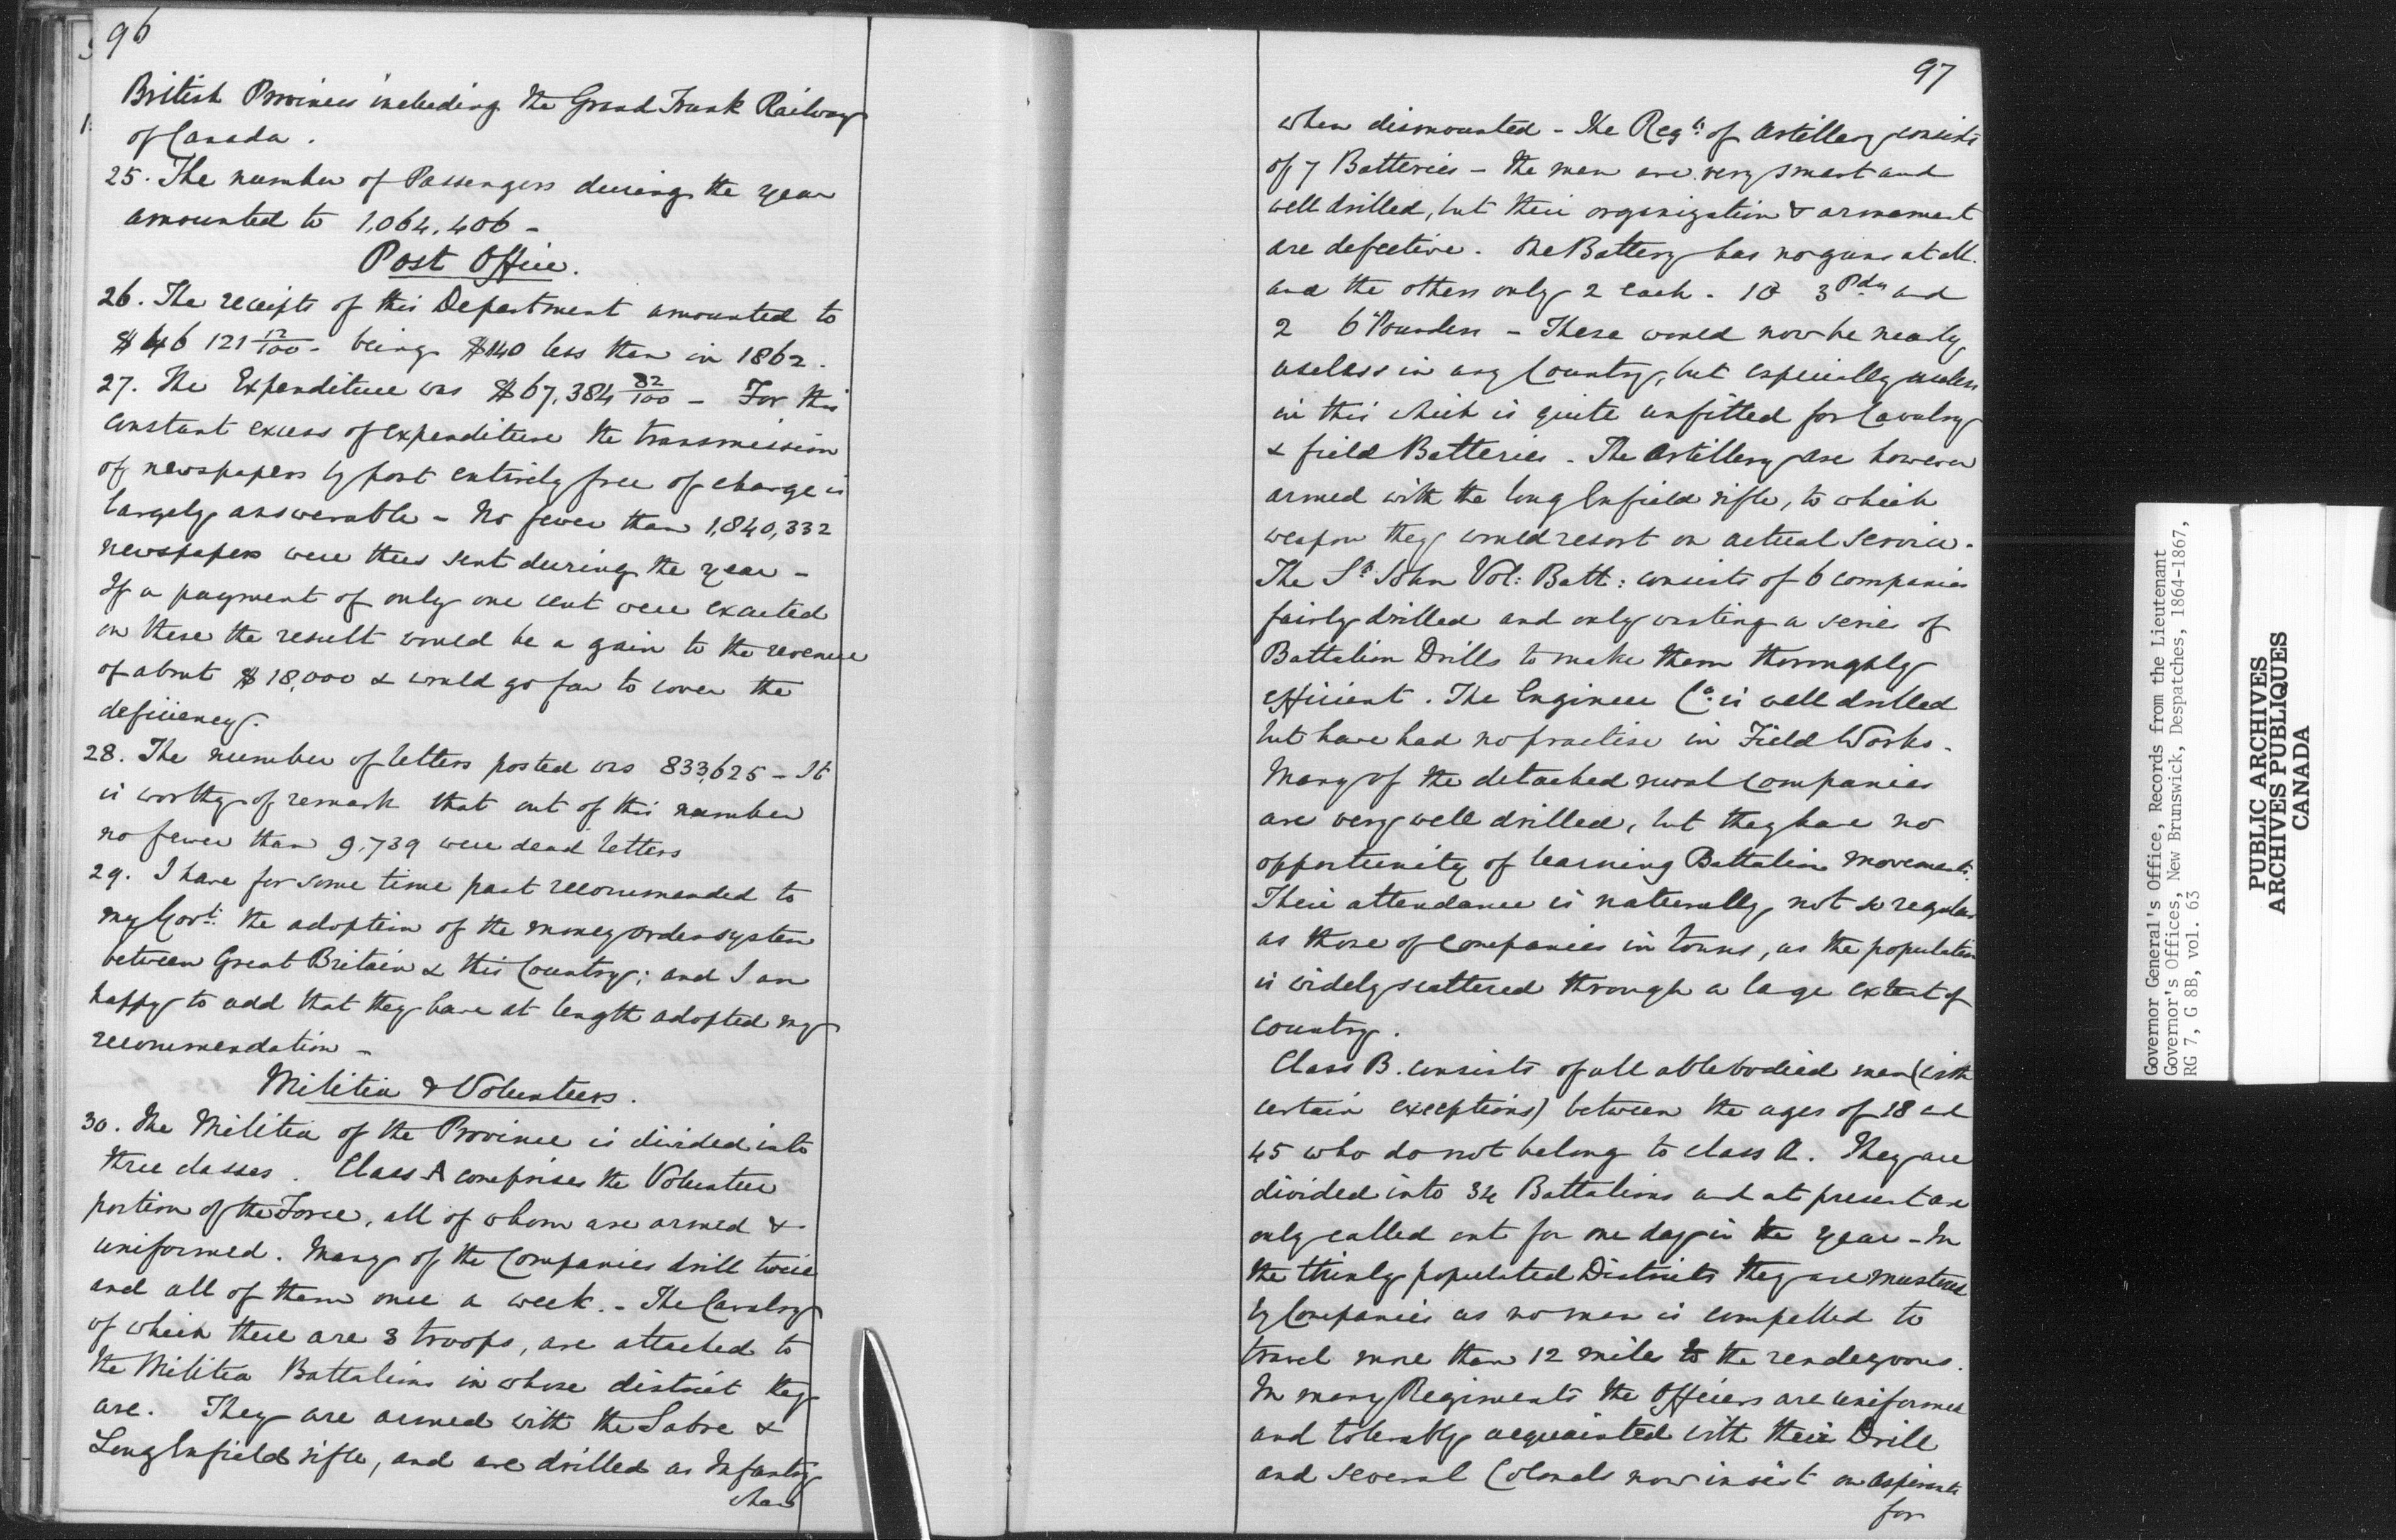 96
British Provinces including the Grand Trunk Railway
of Canada.
25. The number of Passengers during the year
amounted to 1,064,406 -
Post Office.
26. The receipts of this Department amounted to
$46 121 12/100 - being $140 less than in 1862.
27. The Expenditure was $67,384 82/100 - For this
constant excess of expenditure the transmission
of newspapers by post entirely free of charge is
largely answerable - No fewer than 1,840,332
newspapers were thus sent during the year -
If a payment of only one cent were exacted
on these the result would be a gain to the revenue
of about $18,000 & would go far to cover the
deficiency.
28. The number of letters posted was 833,625 - It
is worthy of remark that out of this number
no fewer than 9,739 were dead letters
29. I have for some time past recommended to
my Govt: the adoption of the money order system
between Great Britain & this Country; and I am
happy to add that they have at length adopted my
recommendation -
Militia & Volunteers.
30. The Militia of the Province is divided into
three classes. Class A comprises the Volunteer
portion of the Force, all of whom are armed &
uniformed. Many of the Companies drill twice
and all of them once a week. - The Cavalry
of which there are 3 troops, are attached to
the Militia Battalions in whose district they
are. They are armed with the Sabre &
Long Enfield rifle, and are drilled as Infantry
when
97
when dismounted - The Regt: of Artillery consists
of 7 Batteries - the men are very smart and
well drilled, but their organization & armament
are defective. One Battery has no guns at all.
and the others only 2 each - 10 3 Pdrs and
2 6 Pounders - These would now be nearly
useless in any Country, but especially useless
in this which is quite unfitted for Cavalry
& field Batteries - The Artillery are however
armed with the long Enfield rifle, to which
weapon they would resort on actual service.
The St John Vol: Batt: consists of 6 companies
fairly drilled and only wanting a series of
Battalion Drills to make them thoroughly
efficient. The Engineer Co. is well drilled
but have had no practise in Field Works.
Many of the detached rural companies
are very well drilled, but they have no
opportunity of learning Battalion movements.
Their attendance is naturally not so regular
as those of companies in towns, as the population
is widely scattered through a large extent of
country.
Class B. consists of all ablebodied men (with
certain exceptions) between the ages of 18 and
45 who do not belong to class A. They are
divided into 34 Battalions and at present are
only called out for one day in the year - In
the thinly populated Districts they are mustered
by Companies as no man is compelled to
travel more than 12 miles to the rendezvous.
In many Regiments the Officers are uniformed
and tolerably acquainted with their Drill
and several Colonels now insist on aspirants
for
Governor General's Office, Records from the Lieutenant
Governor's Offices, New Brunswick, Despatches, 1864-1867,
RG 7, G 8B, vol. 63
PUBLIC ARCHIVES
ARCHIVES PUBLIQUES
CANADA